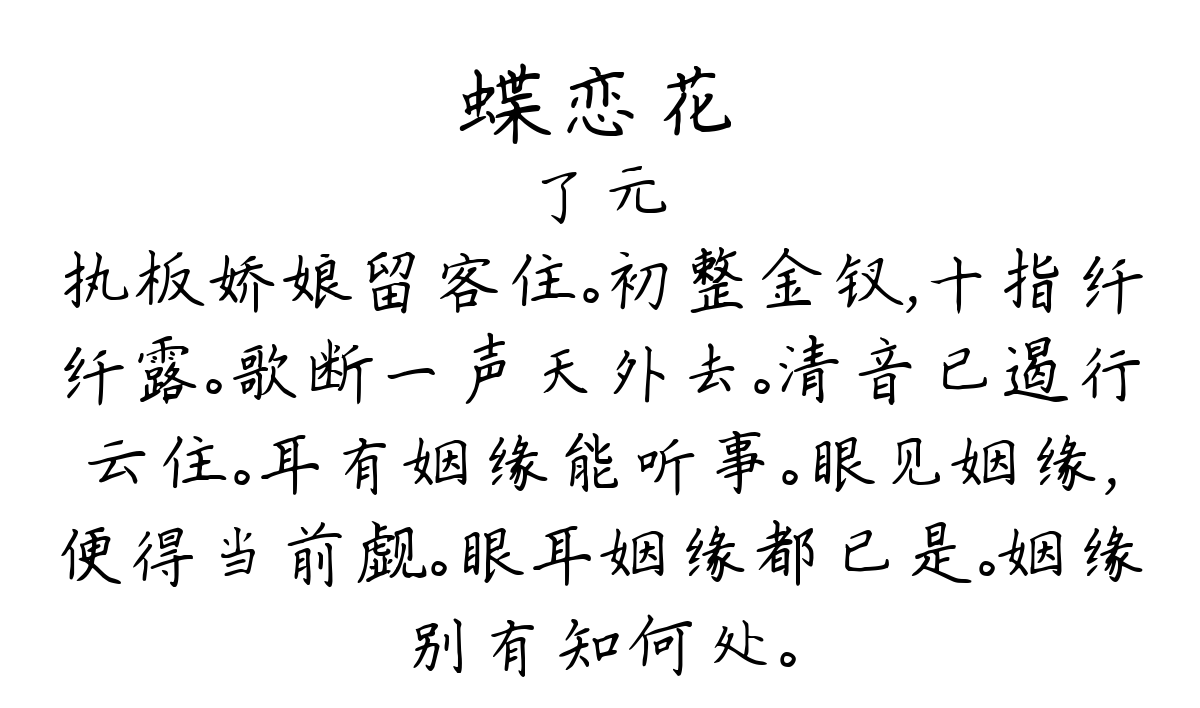 蝶恋花
了元
执板娇娘留客住。初整金钗,十指纤
纤露。歌断一声天外去。清音已遏行
云住。耳有姻缘能听事。眼见姻缘,
便得当前觑。眼耳姻缘都已是。姻缘
别有知何处。